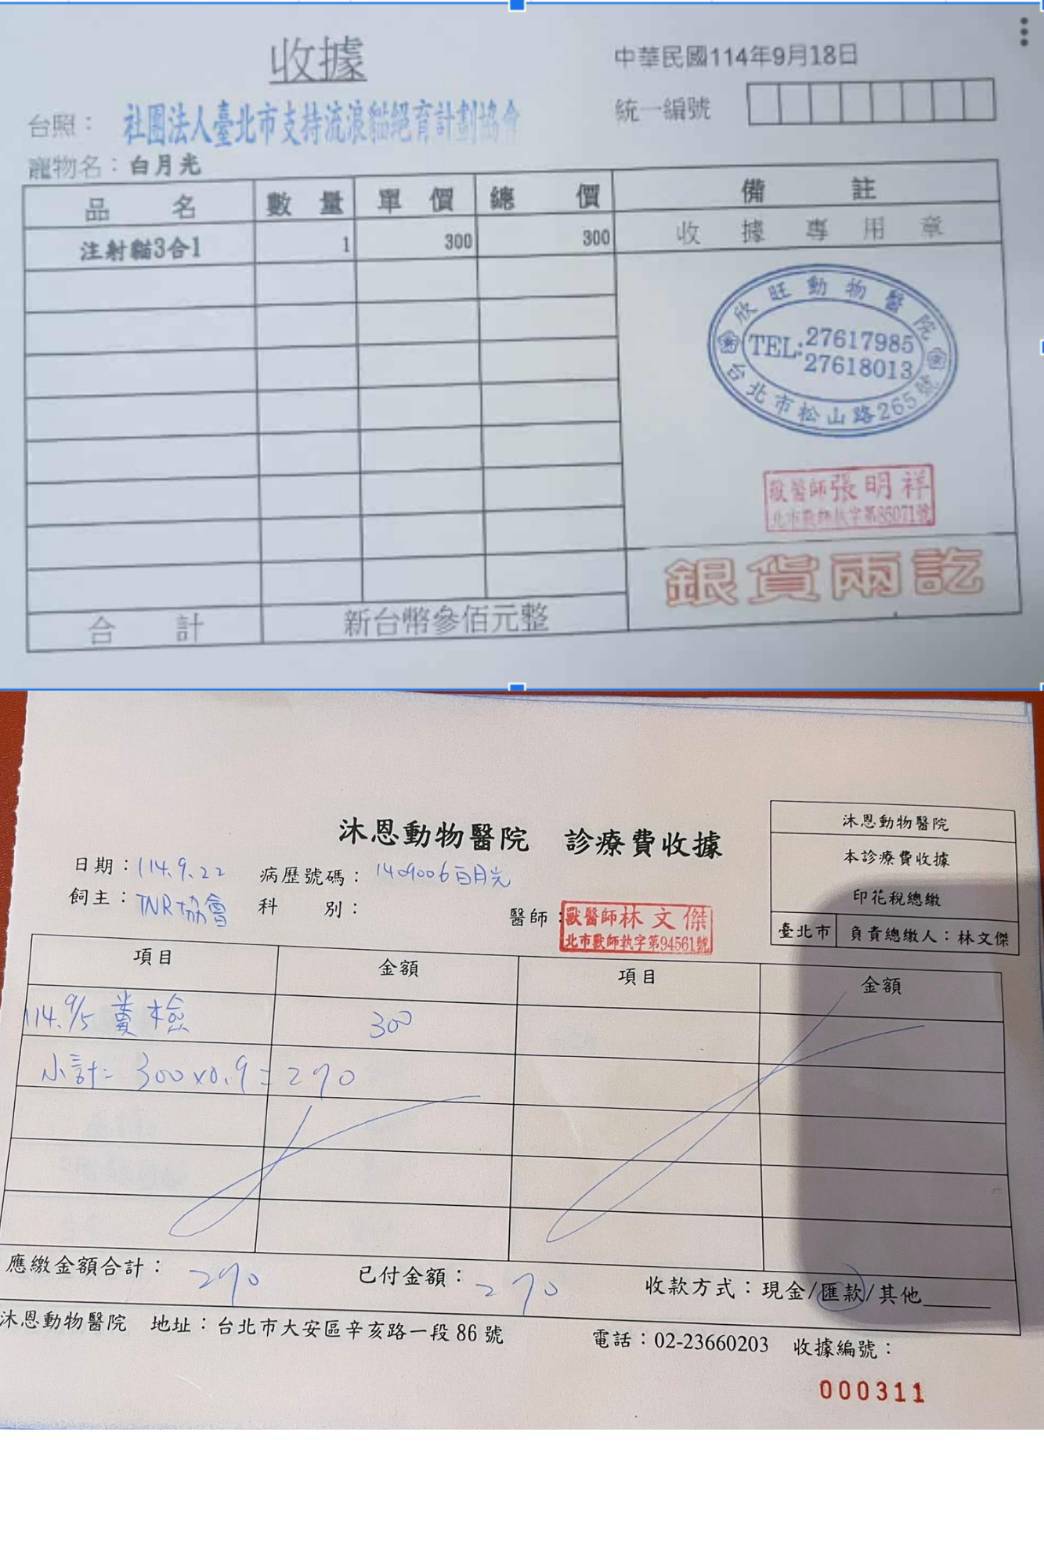 收據
中華民國114年9月18日
台照： 社團法人臺北市支持流浪貓絕育計劃協會
統一編號
寵物名：白月光
品 名 數 量 單 價 總 價 備 註
注射貓3合1 1 300 300 收 據 專 用 章
欣旺動物醫院
TEL:27617985
27618013
台北市松山路265號
獸醫師張明祥
北市獸師執字第85071號
銀貨兩訖
合 計 新台幣參佰元整
沐恩動物醫院 診療費收據
沐恩動物醫院
本診療費收據
印花稅總繳
臺北市 負責總繳人：林文傑
日期：114.9.22 病歷號碼：1409006白月光
飼主：TNR協會 科 別： 醫師：
獸醫師林文傑
北市獸師執字第94561號
項目 金額 項目 金額
114.9/5 糞檢 300
小計= 300x0.9=270
應繳金額合計：270 已付金額：270 收款方式：現金/匯款/其他
沐恩動物醫院 地址：台北市大安區辛亥路一段86號 電話：02-23660203 收據編號：
000311